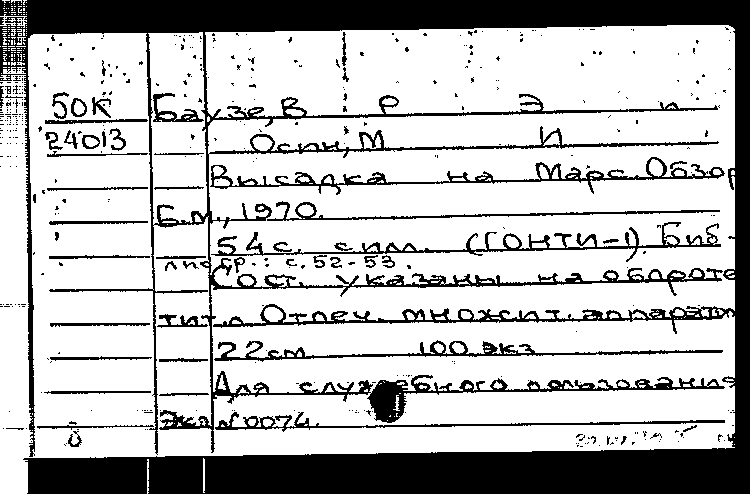 50К Баузе, В Р Э и
24013 Осин, М И
Высадка на Марс. Обзор
Б.м., 1970.
54 с. с илл. (ГОНТИ-1). Биб-
лиогр.: с. 52-53.
Сост. указаны на обороте
тит. л Отпеч. множит. аппаратом
22 см 100 экз
Для служебного пользования
Экз № 0074.